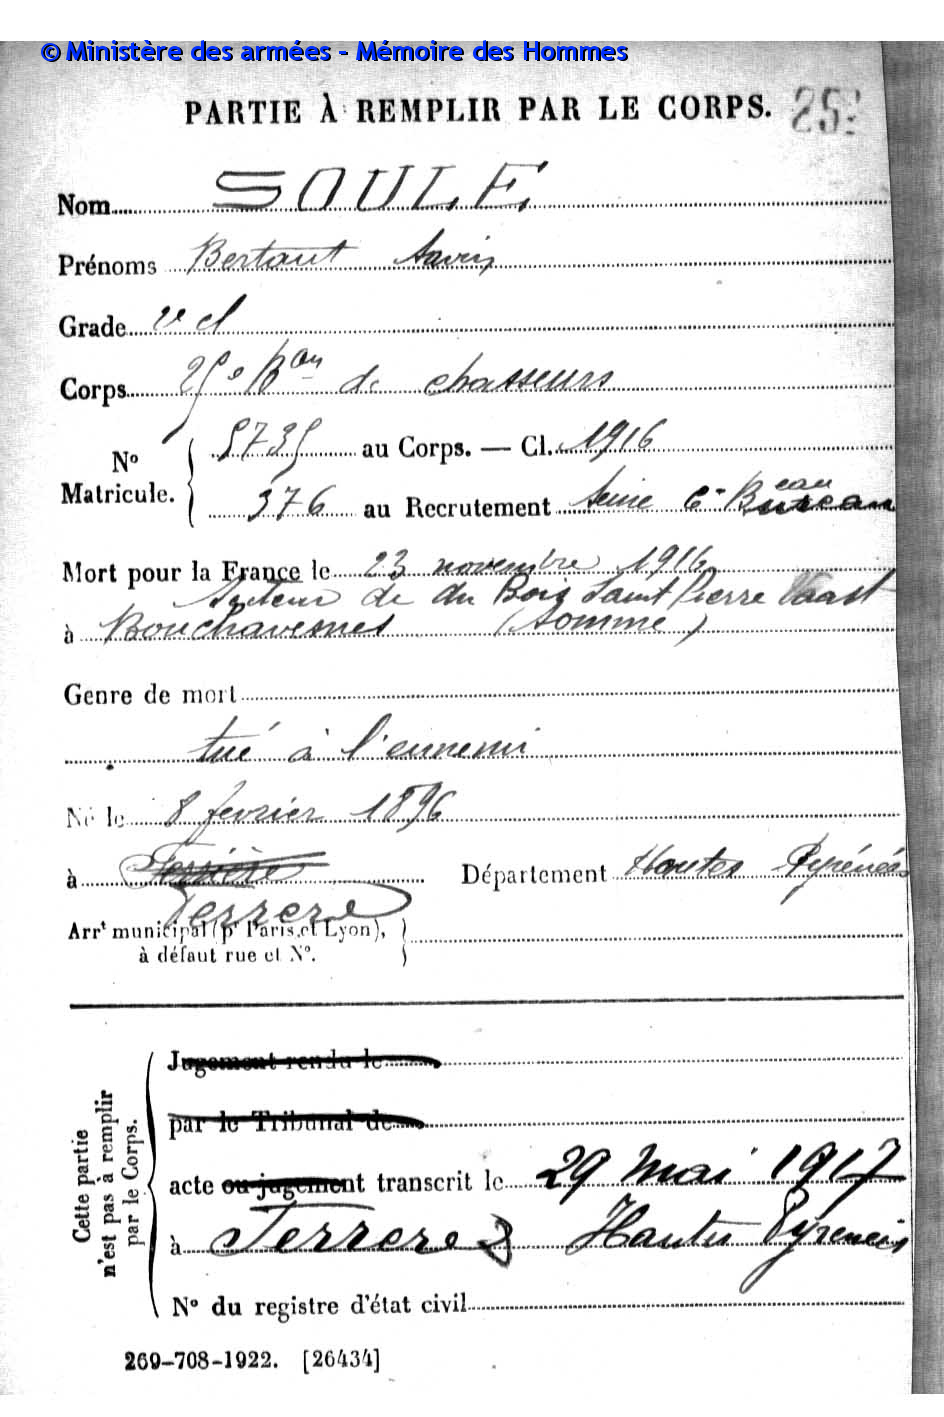 © Ministère des armées - Mémoire des Hommes
PARTIE À REMPLIR PAR LE CORPS.
Nom SOULE
Prénoms Bertaut Savin
Grade 2e cl
Corps 25e Bon de chasseurs
No
Matricule.
5735 au Corps. — Cl. 1916
376 au Recrutement Seine 6e Bureau
Mort pour la France le 23 novembre 1916
Secteur de du Bois Saint Pierre Vaast
à Bouchavesnes (Somme)
Genre de mort
tué à l'ennemi
Né le 8 février 1896
à Ferrière Département Hautes Pyrénées
Ferrere
Arrt municipal (pr Paris et Lyon),
à défaut rue et No.
Cette partie
n'est pas à remplir
par le Corps.
Jugement rendu le
par le Tribunal de
acte ou jugement transcrit le 29 mai 1917
à Ferrere Hautes Pyrénées
No du registre d'état civil
269-708-1922. [26434]